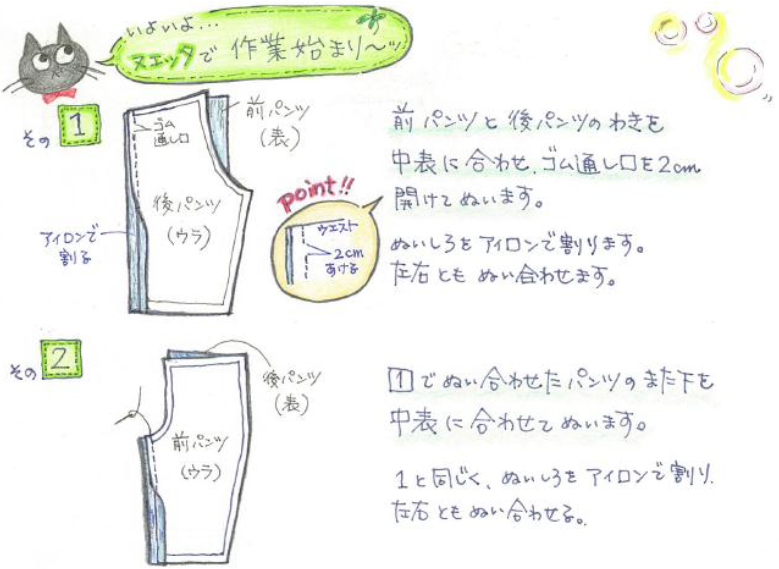 いよいよ...
スエッタで作業始まり〜ッ
その1
ゴム
通し口
前パンツ
(表)
後パンツ
(ウラ)
アイロンで
割る
point!!
ウエスト
2cm
あける
前パンツと後パンツのわきを
中表に合わせ、ゴム通し口を2cm
開けてぬいます。
ぬいしろをアイロンで割ります。
左右ともぬい合わせます。
その2
後パンツ
(表)
前パンツ
(ウラ)
1でぬい合わせたパンツのまた下を
中表に合わせてぬいます。
1と同じく、ぬいしろをアイロンで割り、
左右ともぬい合わせる。